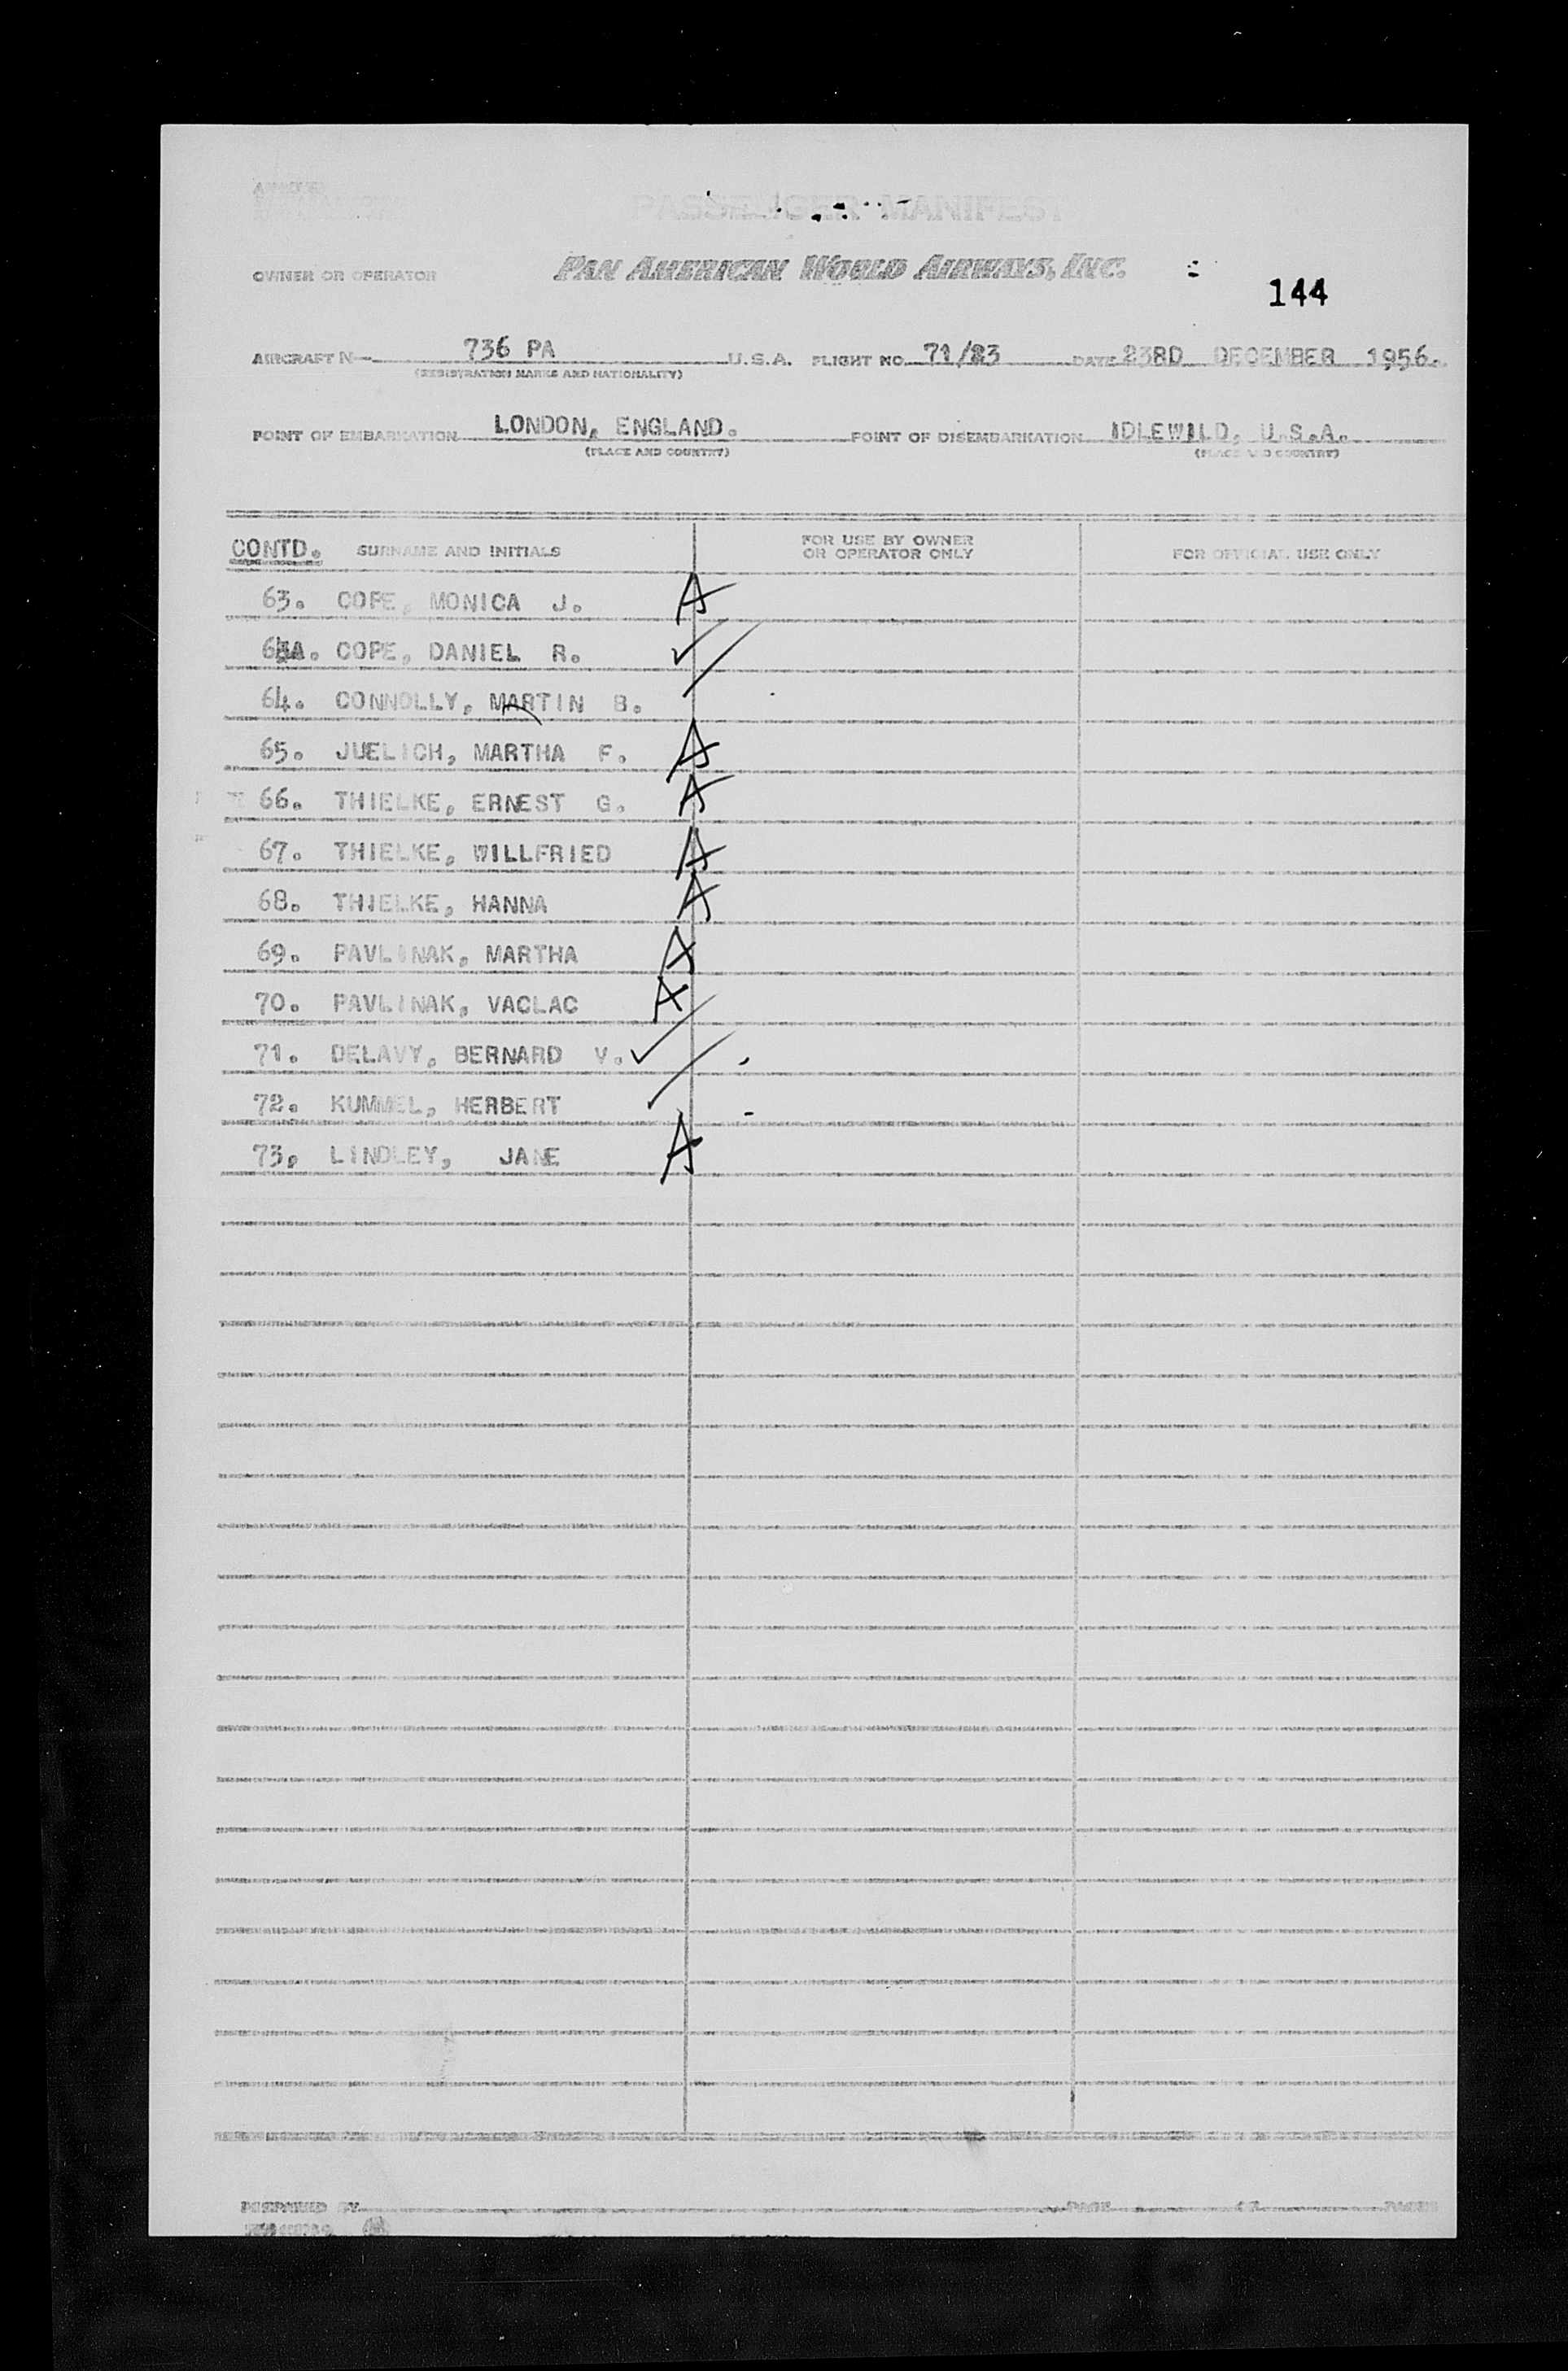 PASSENGER MANIFEST
OWNER OR OPERATOR PAN AMERICAN WORLD AIRWAYS, INC.
144
AIRCRAFT N— 736 PA U.S.A. FLIGHT NO. 71/23 DATE 23RD DECEMBER 1956.
(REGISTRATION MARKS AND NATIONALITY)
POINT OF EMBARKATION LONDON, ENGLAND. POINT OF DISEMBARKATION IDLEWILD, U.S.A.
(PLACE AND COUNTRY) (PLACE AND COUNTRY)
CONTD. SURNAME AND INITIALS FOR USE BY OWNER OR OPERATOR ONLY FOR OFFICIAL USE ONLY
63. COPE, MONICA J. A
63A. COPE, DANIEL R. ✓
64. CONNOLLY, MARTIN B. /
65. JUELICH, MARTHA F. A
66. THIELKE, ERNEST G. A
67. THIELKE, WILLFRIED A
68. THIELKE, HANNA A
69. PAVLINAK, MARTHA A
70. PAVLINAK, VACLAC A
71. DELAVY, BERNARD V. ✓
72. KUMMEL, HERBERT /
73, LINDLEY, JANE A
PREPARED BY PAGE OF PAGES